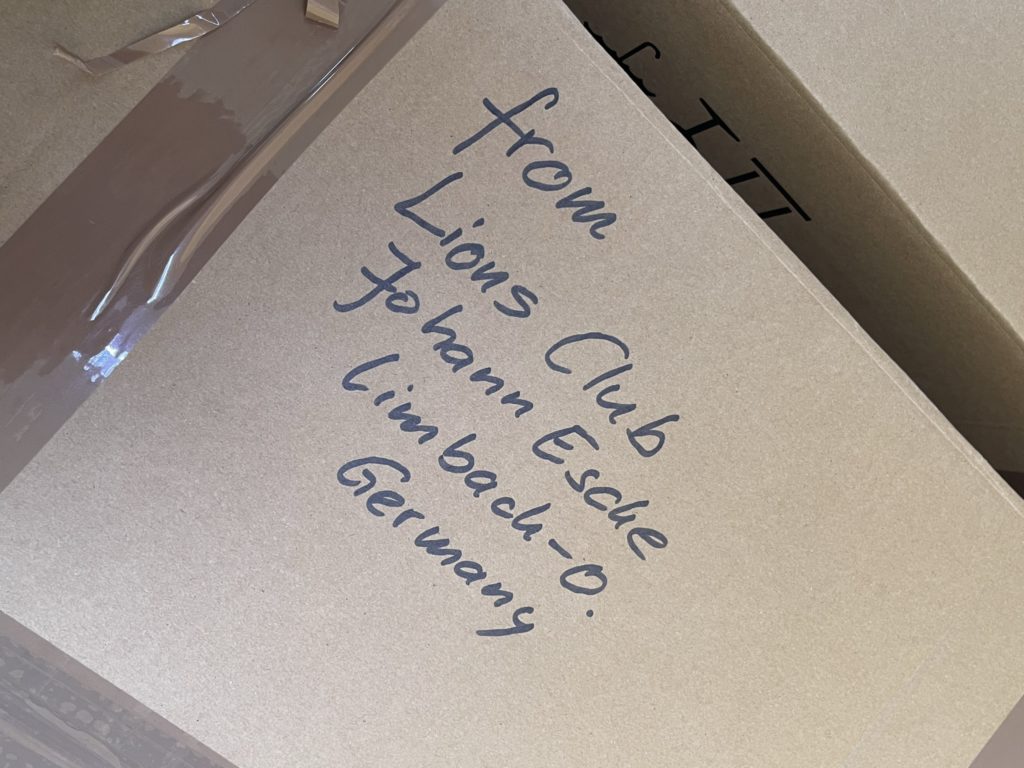 from
Lions Club
Johann Esche
Limbach-O.
Germany
II